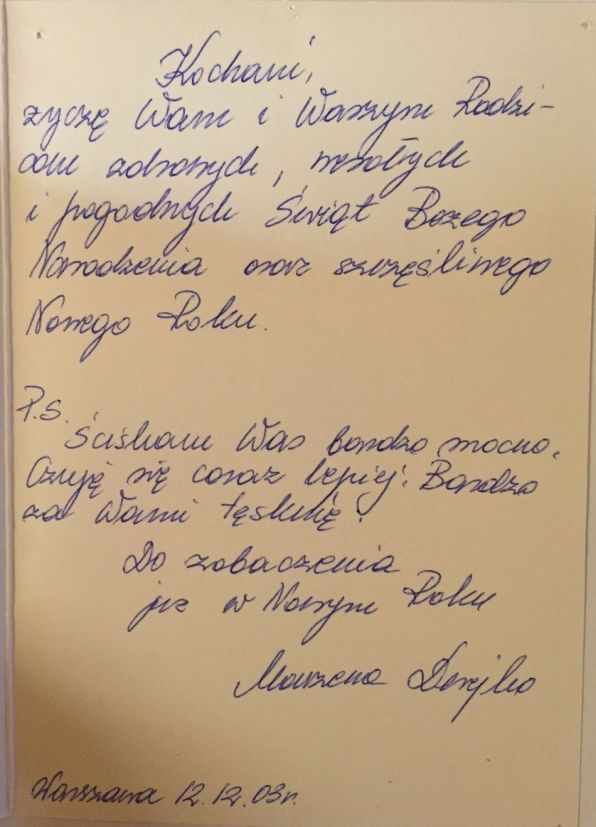 Kochani,
życzę Wam i Waszym Rodzi-
com zdrowych, wesołych
i pogodnych Świąt Bożego
Narodzenia oraz szczęśliwego
Nowego Roku.
P.S.
Ściskam Was bardzo mocno.
Czuję się coraz lepiej! Bardzo
za Wami tęsknię!
Do zobaczenia
już w Nowym Roku
Marzena
Warszawa 12.12.03r.